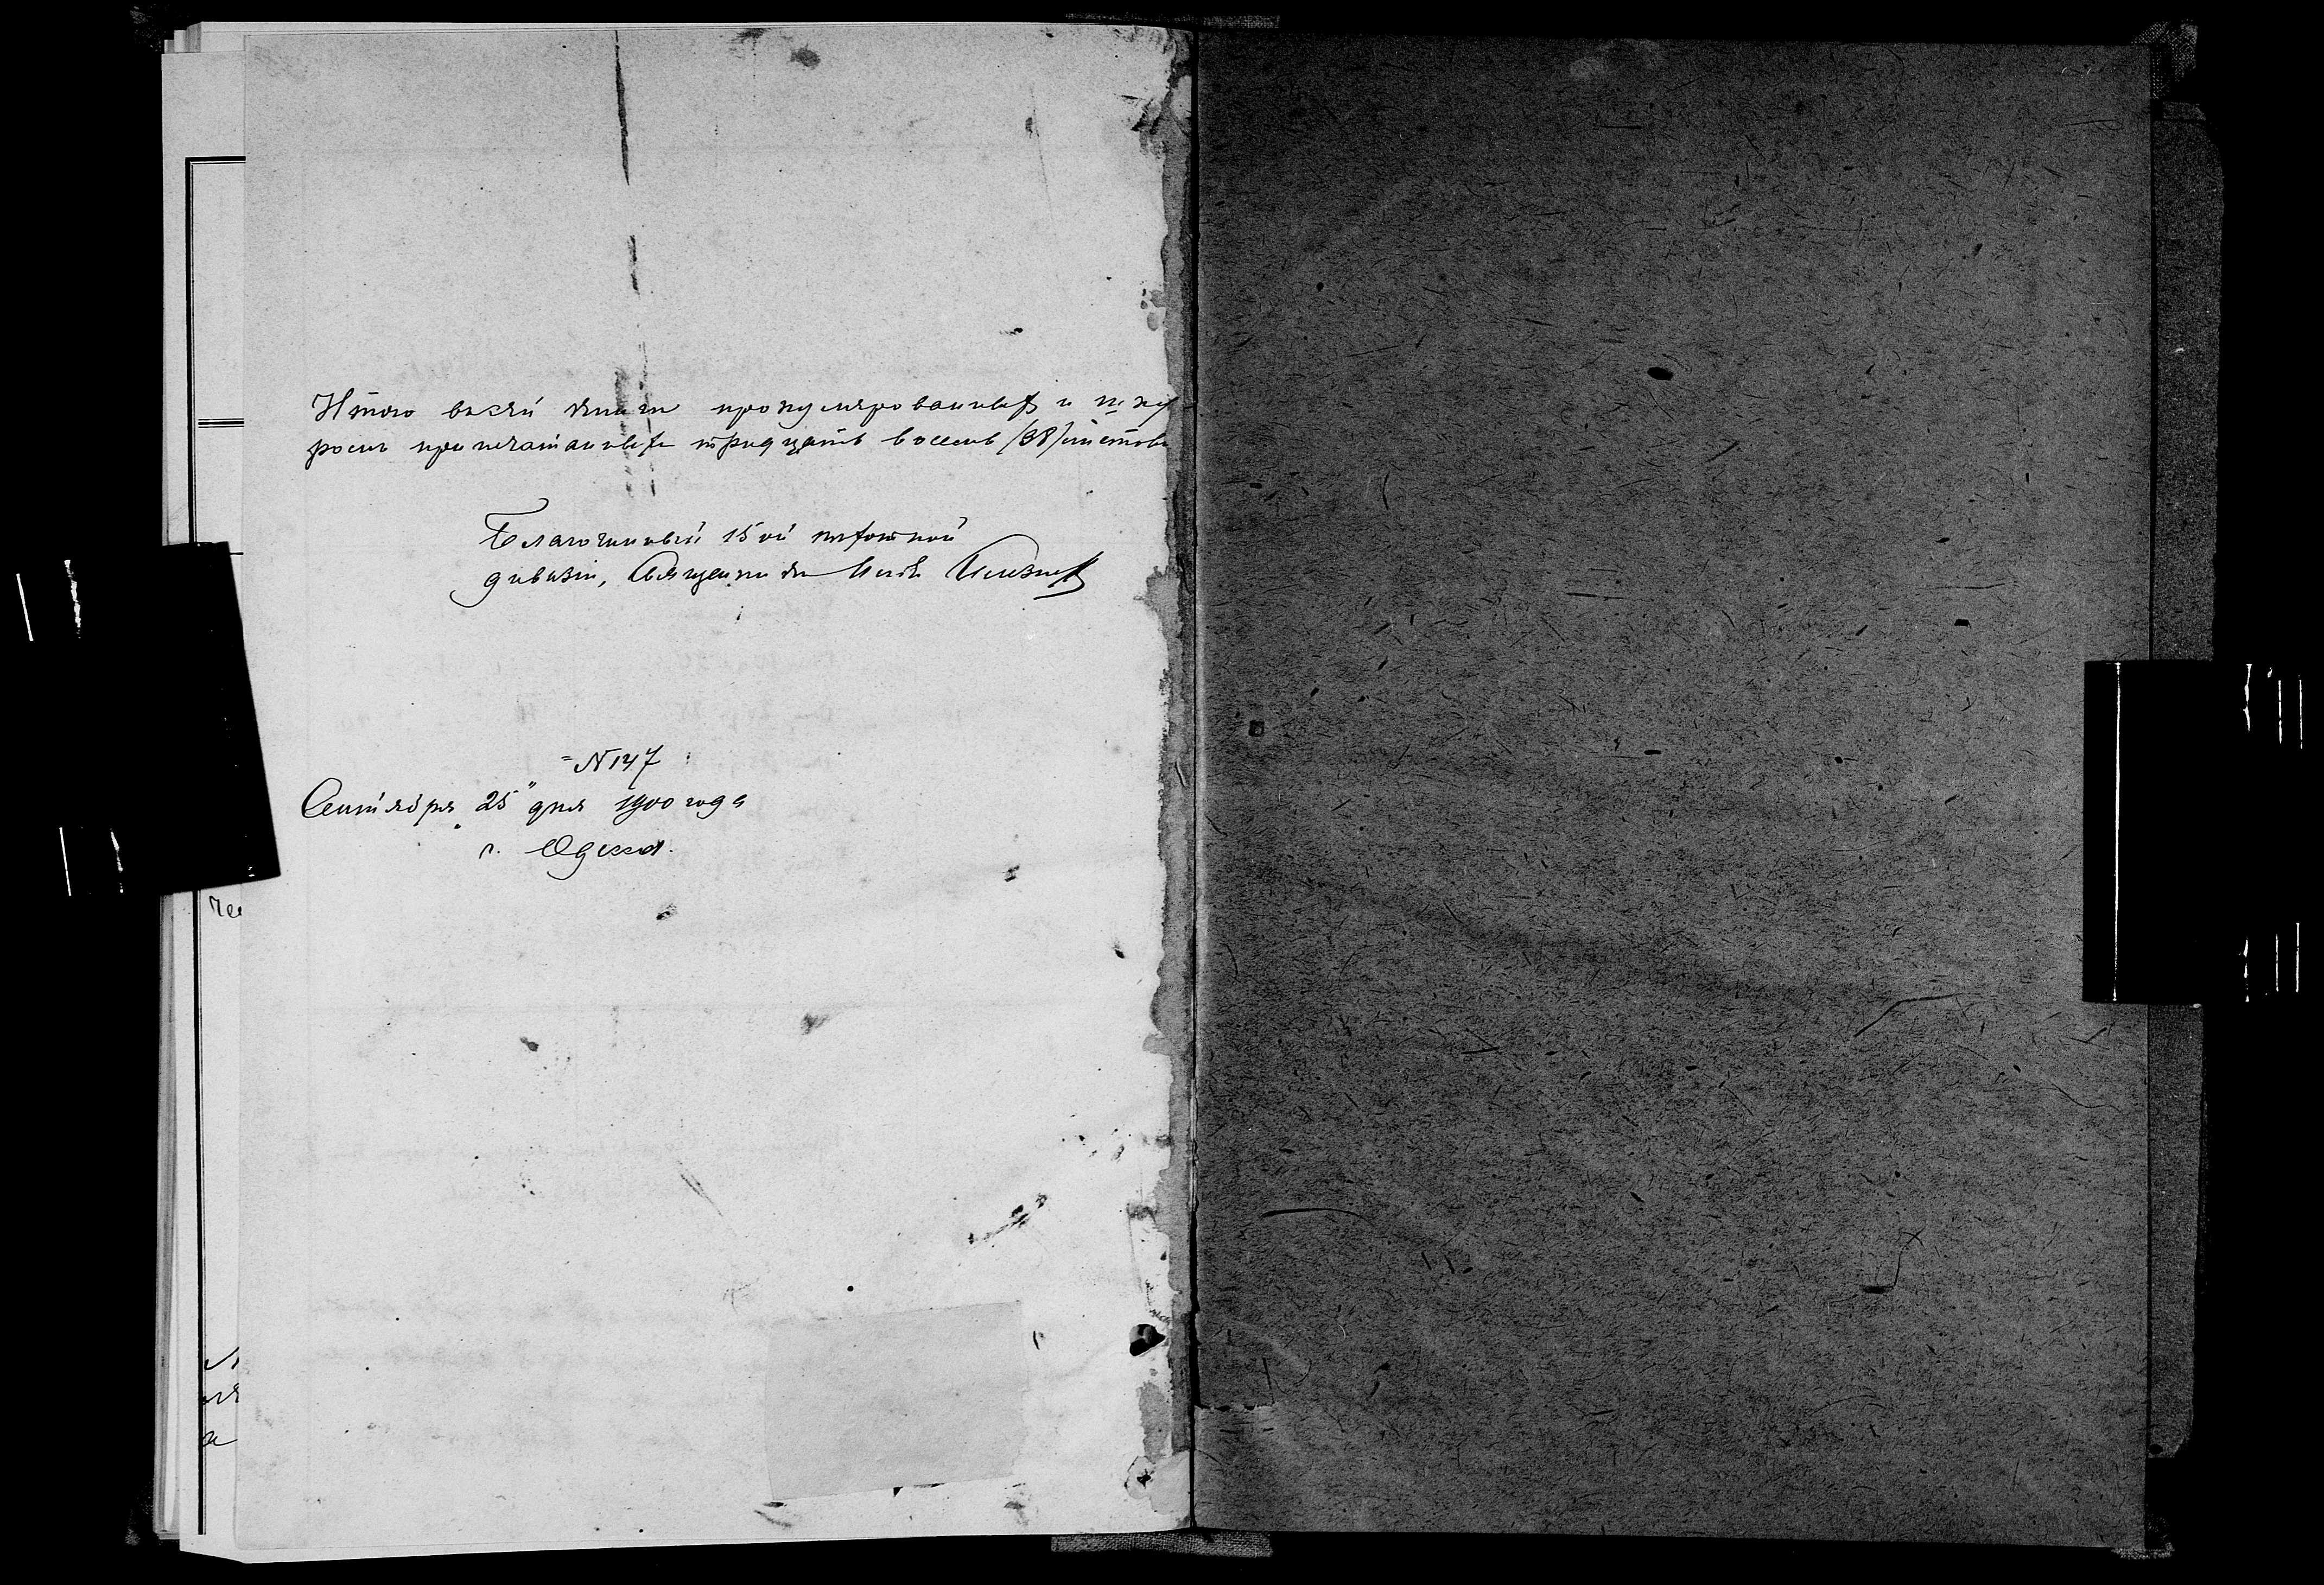 Итого въ сей книгѣ пронумерованныхъ и шну
ромъ припечатанныхъ тридцать восемь /38/ листовъ
Благочинный 15ой пѣхотной
дивизіи, Священникъ
№ 147
Сентября „25" дня 1900 года
г. Одесса.